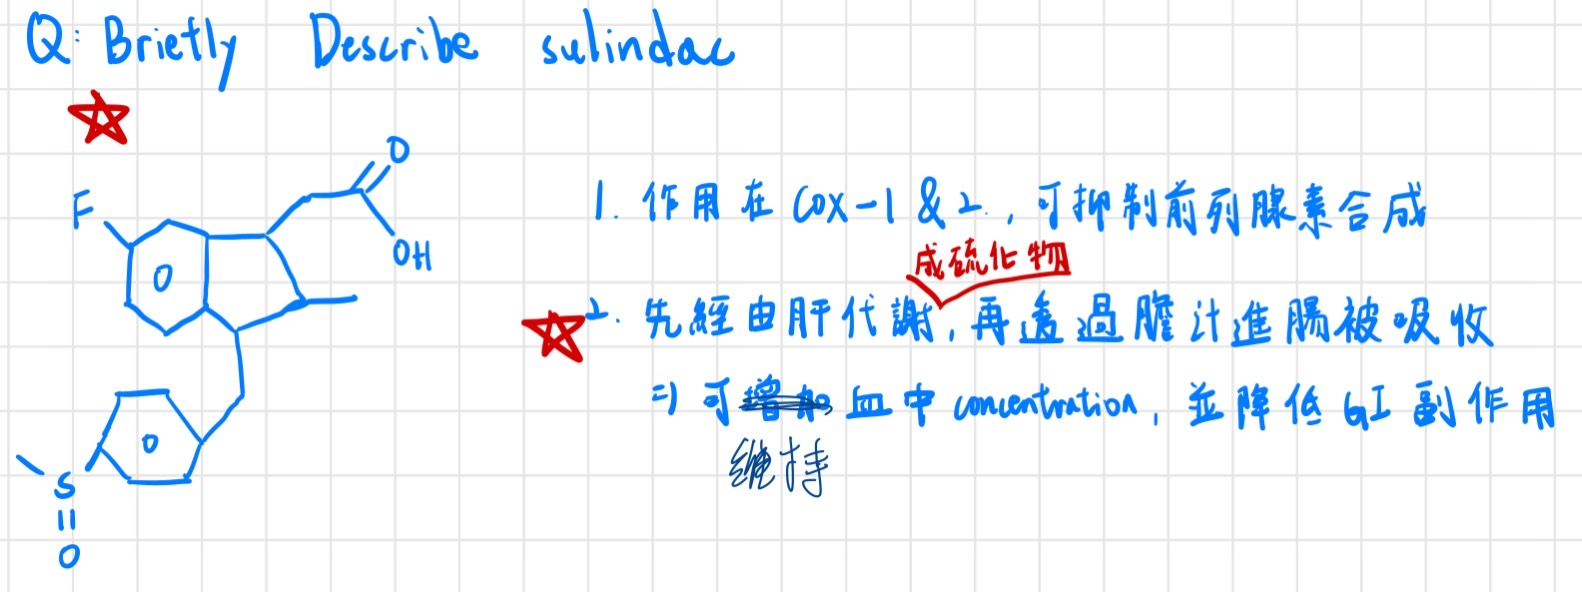 Q: Briefly Describe sulindac
F
O
OH
S
O
1. 作用在 COX-1 & 2., 可抑制前列腺素合成
成硫化物
2. 先經由肝代謝, 再透過膽汁進腸被吸收
=) 可增加血中 concentration, 並降低 GI 副作用
維持